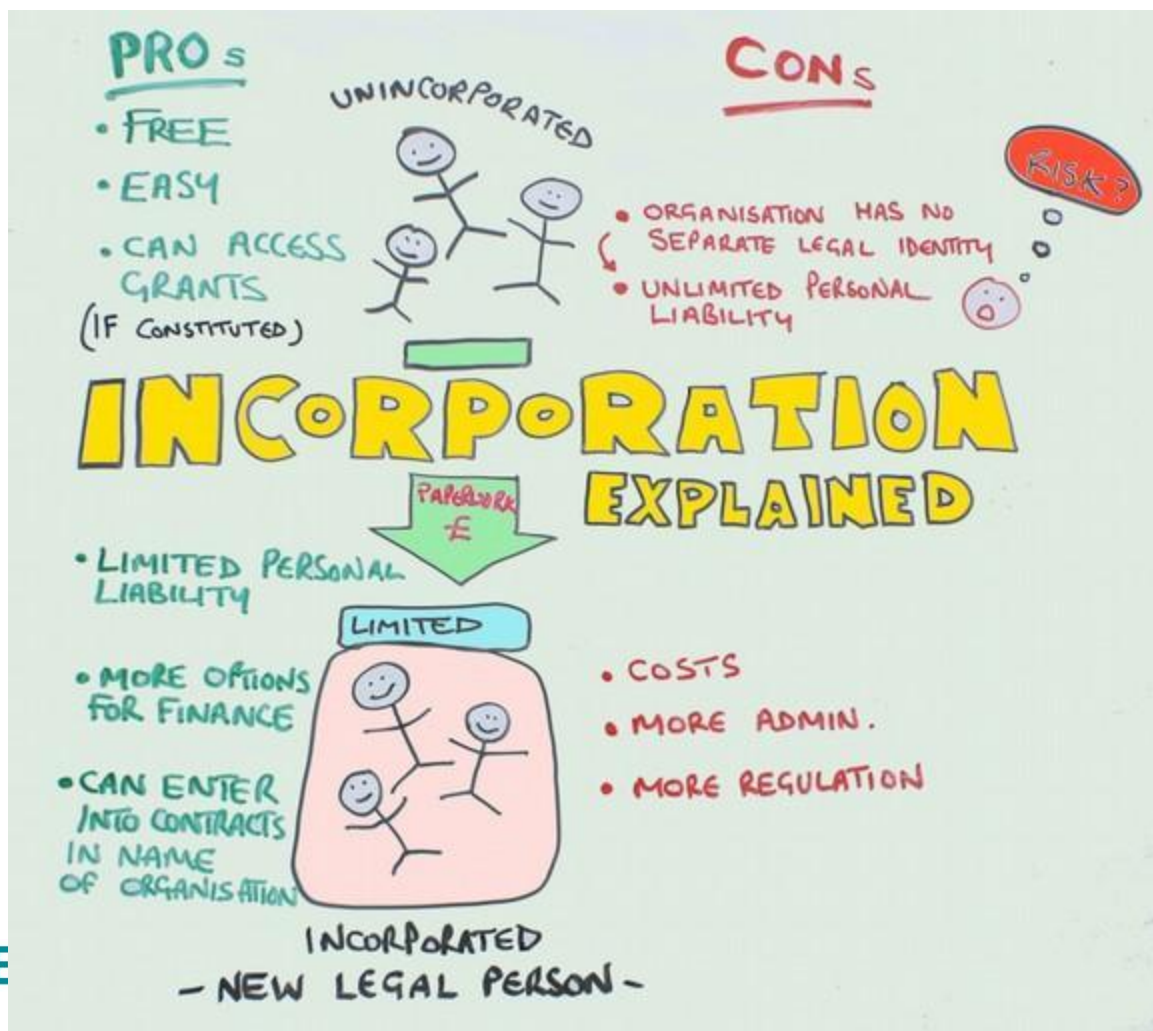 PROs
CONs
UNINCORPORATED
• FREE
• EASY
• CAN ACCESS
GRANTS
(IF CONSTITUTED)
RISK?
• ORGANISATION HAS NO
SEPARATE LEGAL IDENTITY
• UNLIMITED PERSONAL
LIABILITY
INCORPORATION
EXPLAINED
PAPERWORK
£
• LIMITED PERSONAL
LIABILITY
• MORE OPTIONS
FOR FINANCE
• CAN ENTER
INTO CONTRACTS
IN NAME
OF ORGANISATION
LIMITED
• COSTS
• MORE ADMIN.
• MORE REGULATION
INCORPORATED
- NEW LEGAL PERSON -